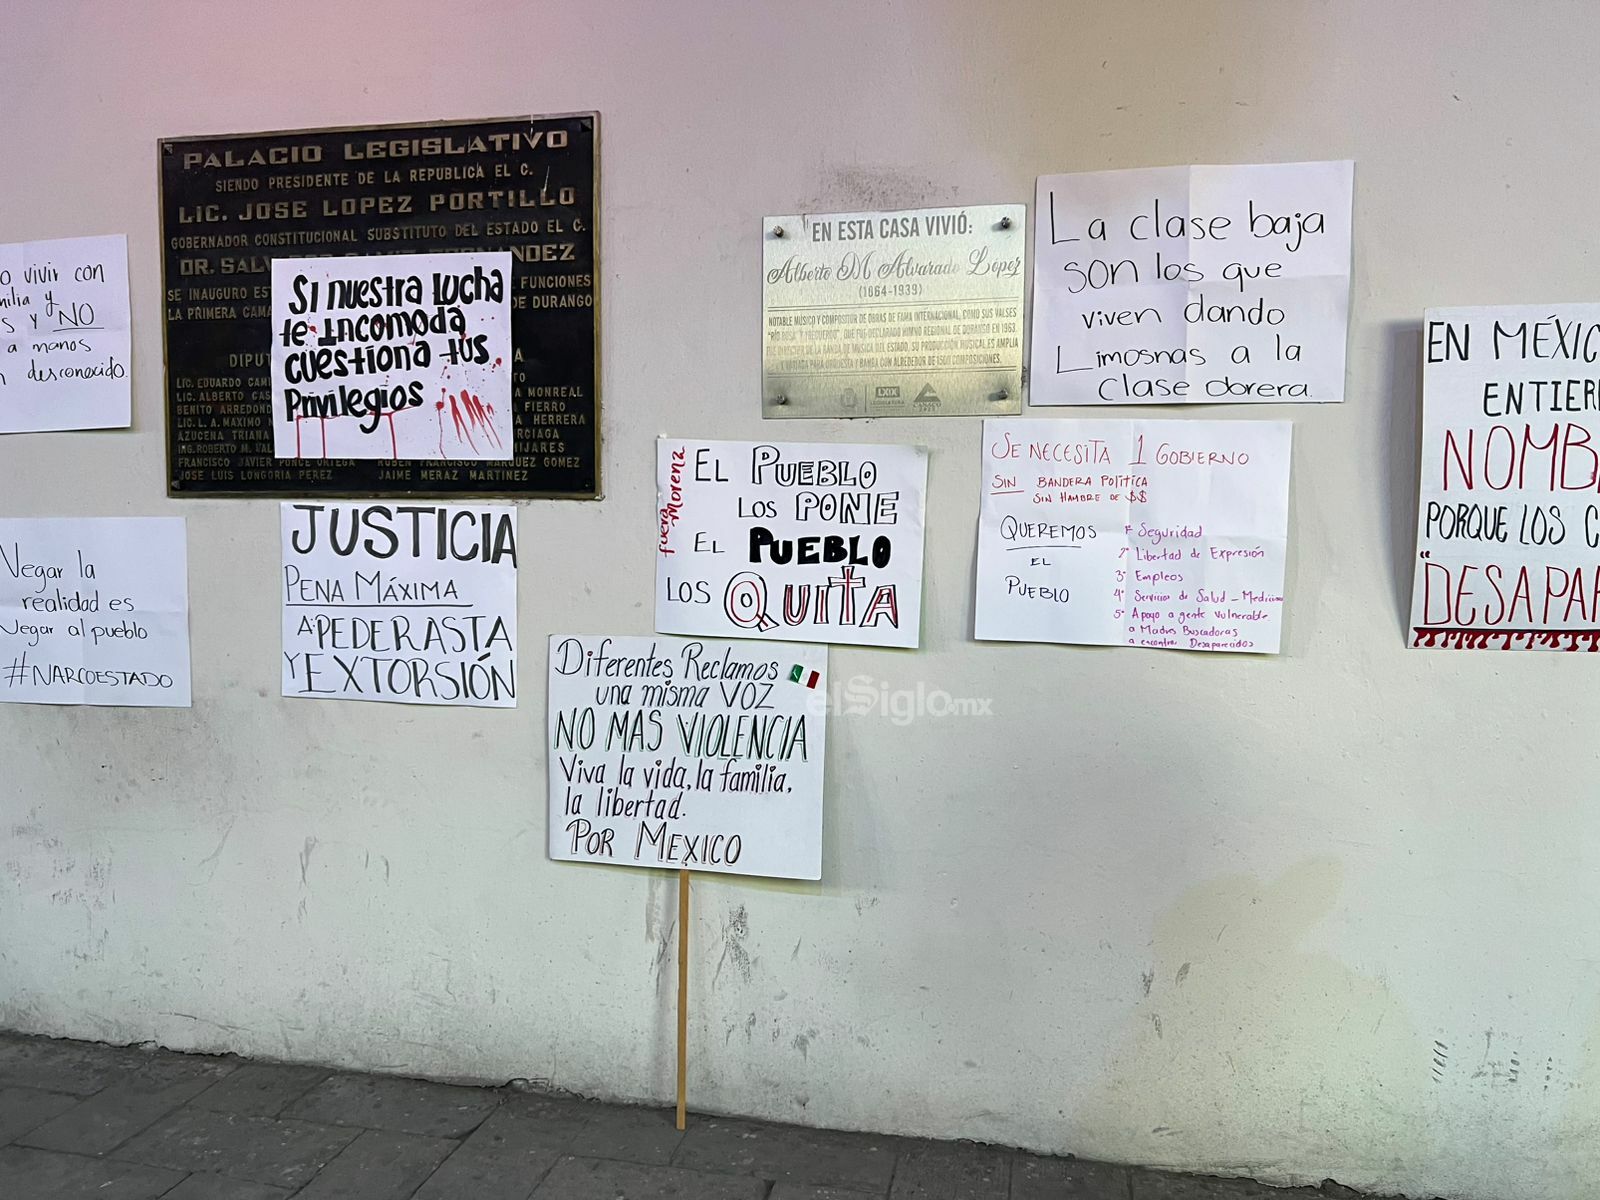 PALACIO LEGISLATIVO
SIENDO PRESIDENTE DE LA REPUBLICA EL C.
LIC. JOSE LOPEZ PORTILLO
GOBERNADOR CONSTITUCIONAL SUBSTITUTO DEL ESTADO EL C.
DR.
SE INAUGURO
FUNCIONES
LA PRIMERA
DE DURANGO
LIC. EDUARDO
LIC. ALBERTO
MONREAL
BENITO
FIERRO
LIC. L. A. MAXIMO
HERRERA
AZUCENA TRIANA
ING. ROBERTO M.
MIJARES
FRANCISCO JAVIER PONCE ORTEGA RUBEN FRANCISCO MARQUEZ GOMEZ
JOSE LUIS LONGORIA PEREZ JAIME MERAZ MARTINEZ
SI nuestra lucha
te Incomoda
cuestiona tus
Privilegios
o vivir con
y
s y NO
a manos
desconocido.
Negar la
realidad es
Negar al pueblo
#NARCOESTADO
JUSTICIA
PENA MÁXIMA
A: PEDERASTA
Y EXTORSIÓN
EN ESTA CASA VIVIÓ:
Alberto M. Alvarado López
(1864-1939)
NOTABLE MUSICO Y COMPOSITOR DE OBRAS DE FAMA INTERNACIONAL, COMO SUS VALSES
"RÍO ROSA" Y "RECUERDO", QUE FUE DECLARADO HIMNO REGIONAL DE DURANGO EN 1963.
FUE DIRECTOR DE LA BANDA DE MÚSICA DEL ESTADO, SU PRODUCCIÓN MUSICAL ES AMPLIA
Y VARIADA PARA ORQUESTA Y BANDA CON ALREDEDOR DE 1500 COMPOSICIONES.
LXIX
LEGISLATURA
La clase baja
son los que
viven dando
Limosnas a la
clase obrera.
fuera Morena
EL PUEBLO
LOS PONE
EL PUEBLO
LOS QUITA
SE NECESITA 1 GOBIERNO
SIN BANDERA POLÍTICA
SIN HAMBRE DE $$
QUEREMOS
EL
PUEBLO
1° Seguridad
2° Libertad de Expresión
3° Empleos
4° Servicios de Salud - Medicinas
5° Apoyo a gente vulnerable
a Madres Buscadoras
a encontrar Desaparecidos
Diferentes Reclamos
una misma VOZ
NO MAS VIOLENCIA
Viva la vida, la familia,
la libertad.
POR MEXICO
elSiglo.mx
EN MÉXIC
ENTIER
NOMB
PORQUE LOS C
"DESAPAR